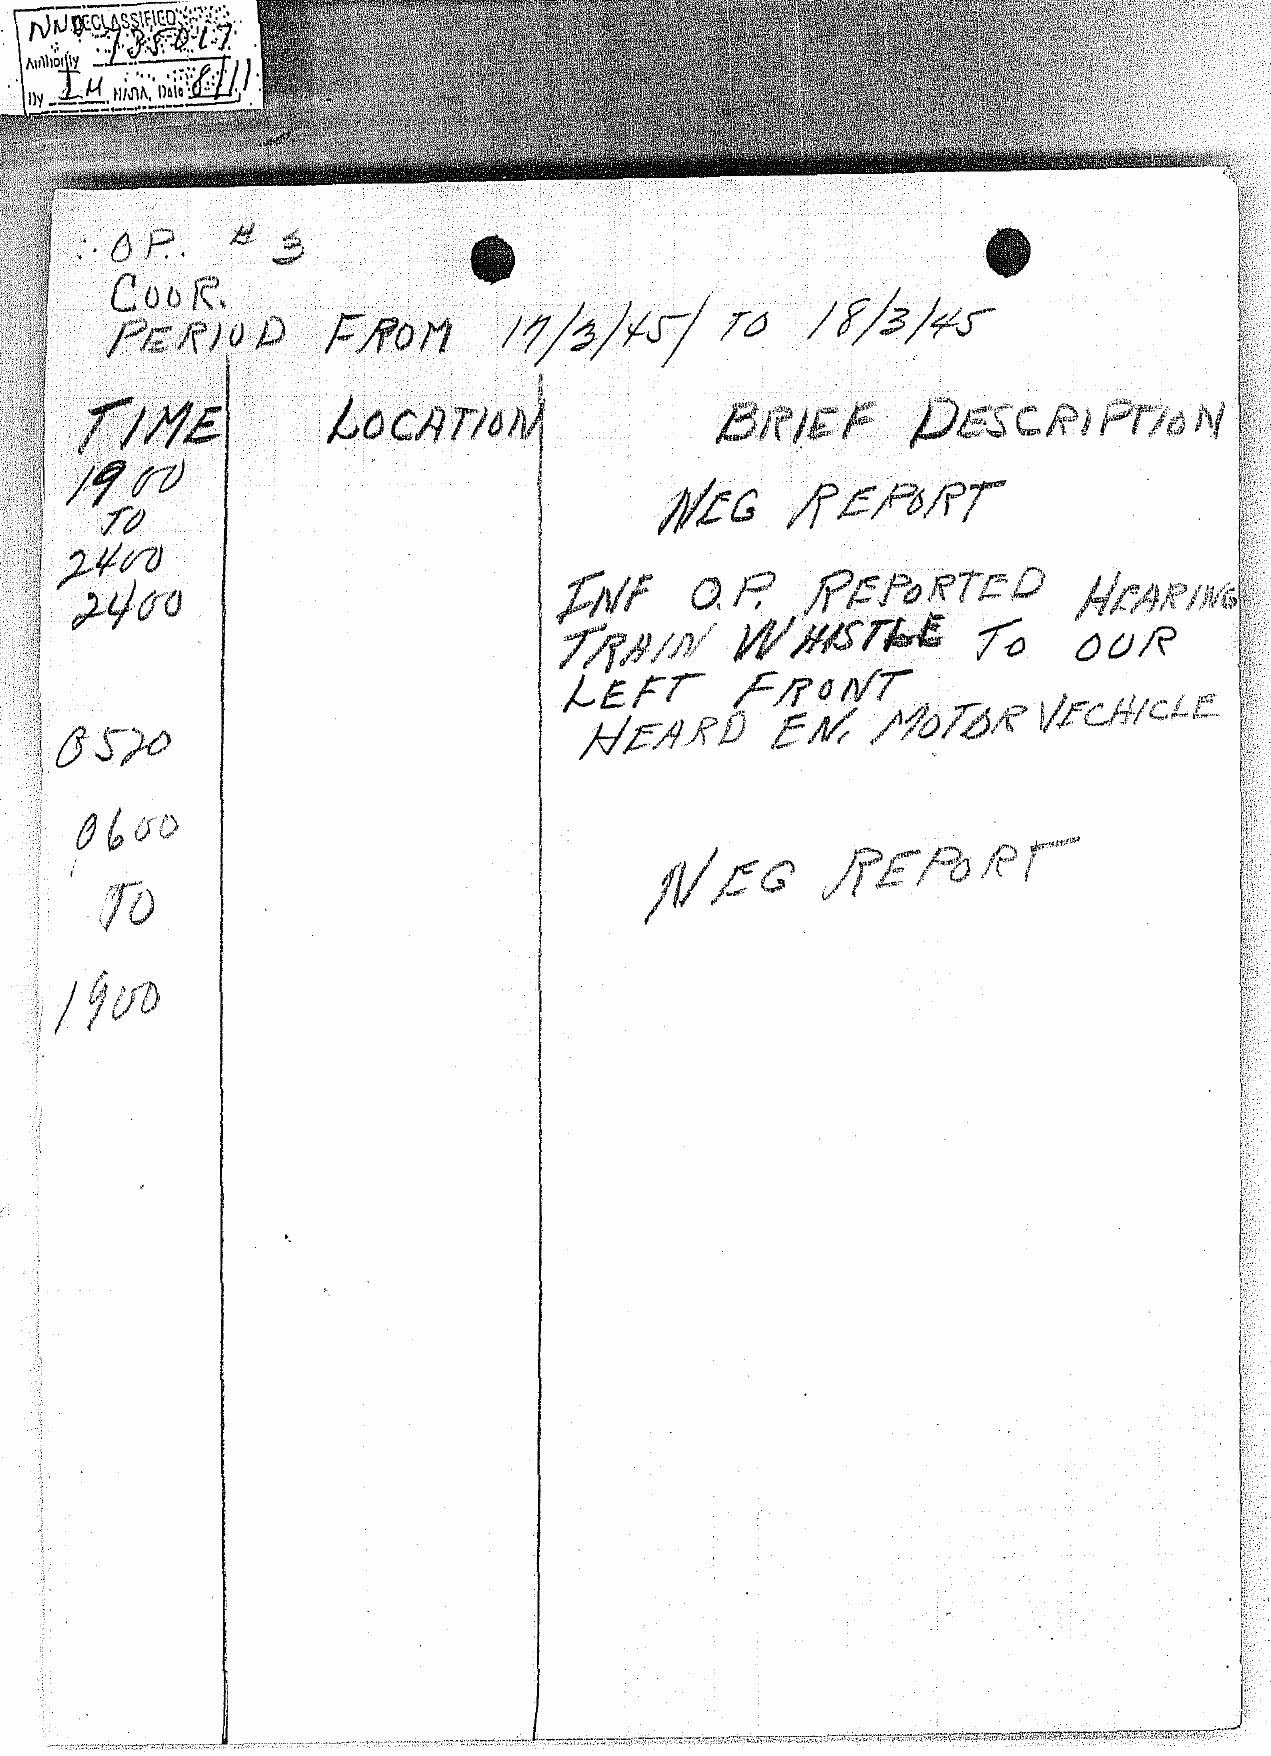 DECLASSIFIED
Authority NND 735017
By IH NARA, Date 8/11
O.P. # 3
COOR.
PERIOD FROM 17/3/45/ TO 18/3/45
TIME LOCATION BRIEF DESCRIPTION
1900
TO
2400
NEG REPORT
2400 INF O.P. REPORTED HEARING
TRAIN WHISTLE TO OUR
LEFT FRONT
0520 HEARD EN. MOTOR VECHICLE
0600
TO
1900
NEG REPORT